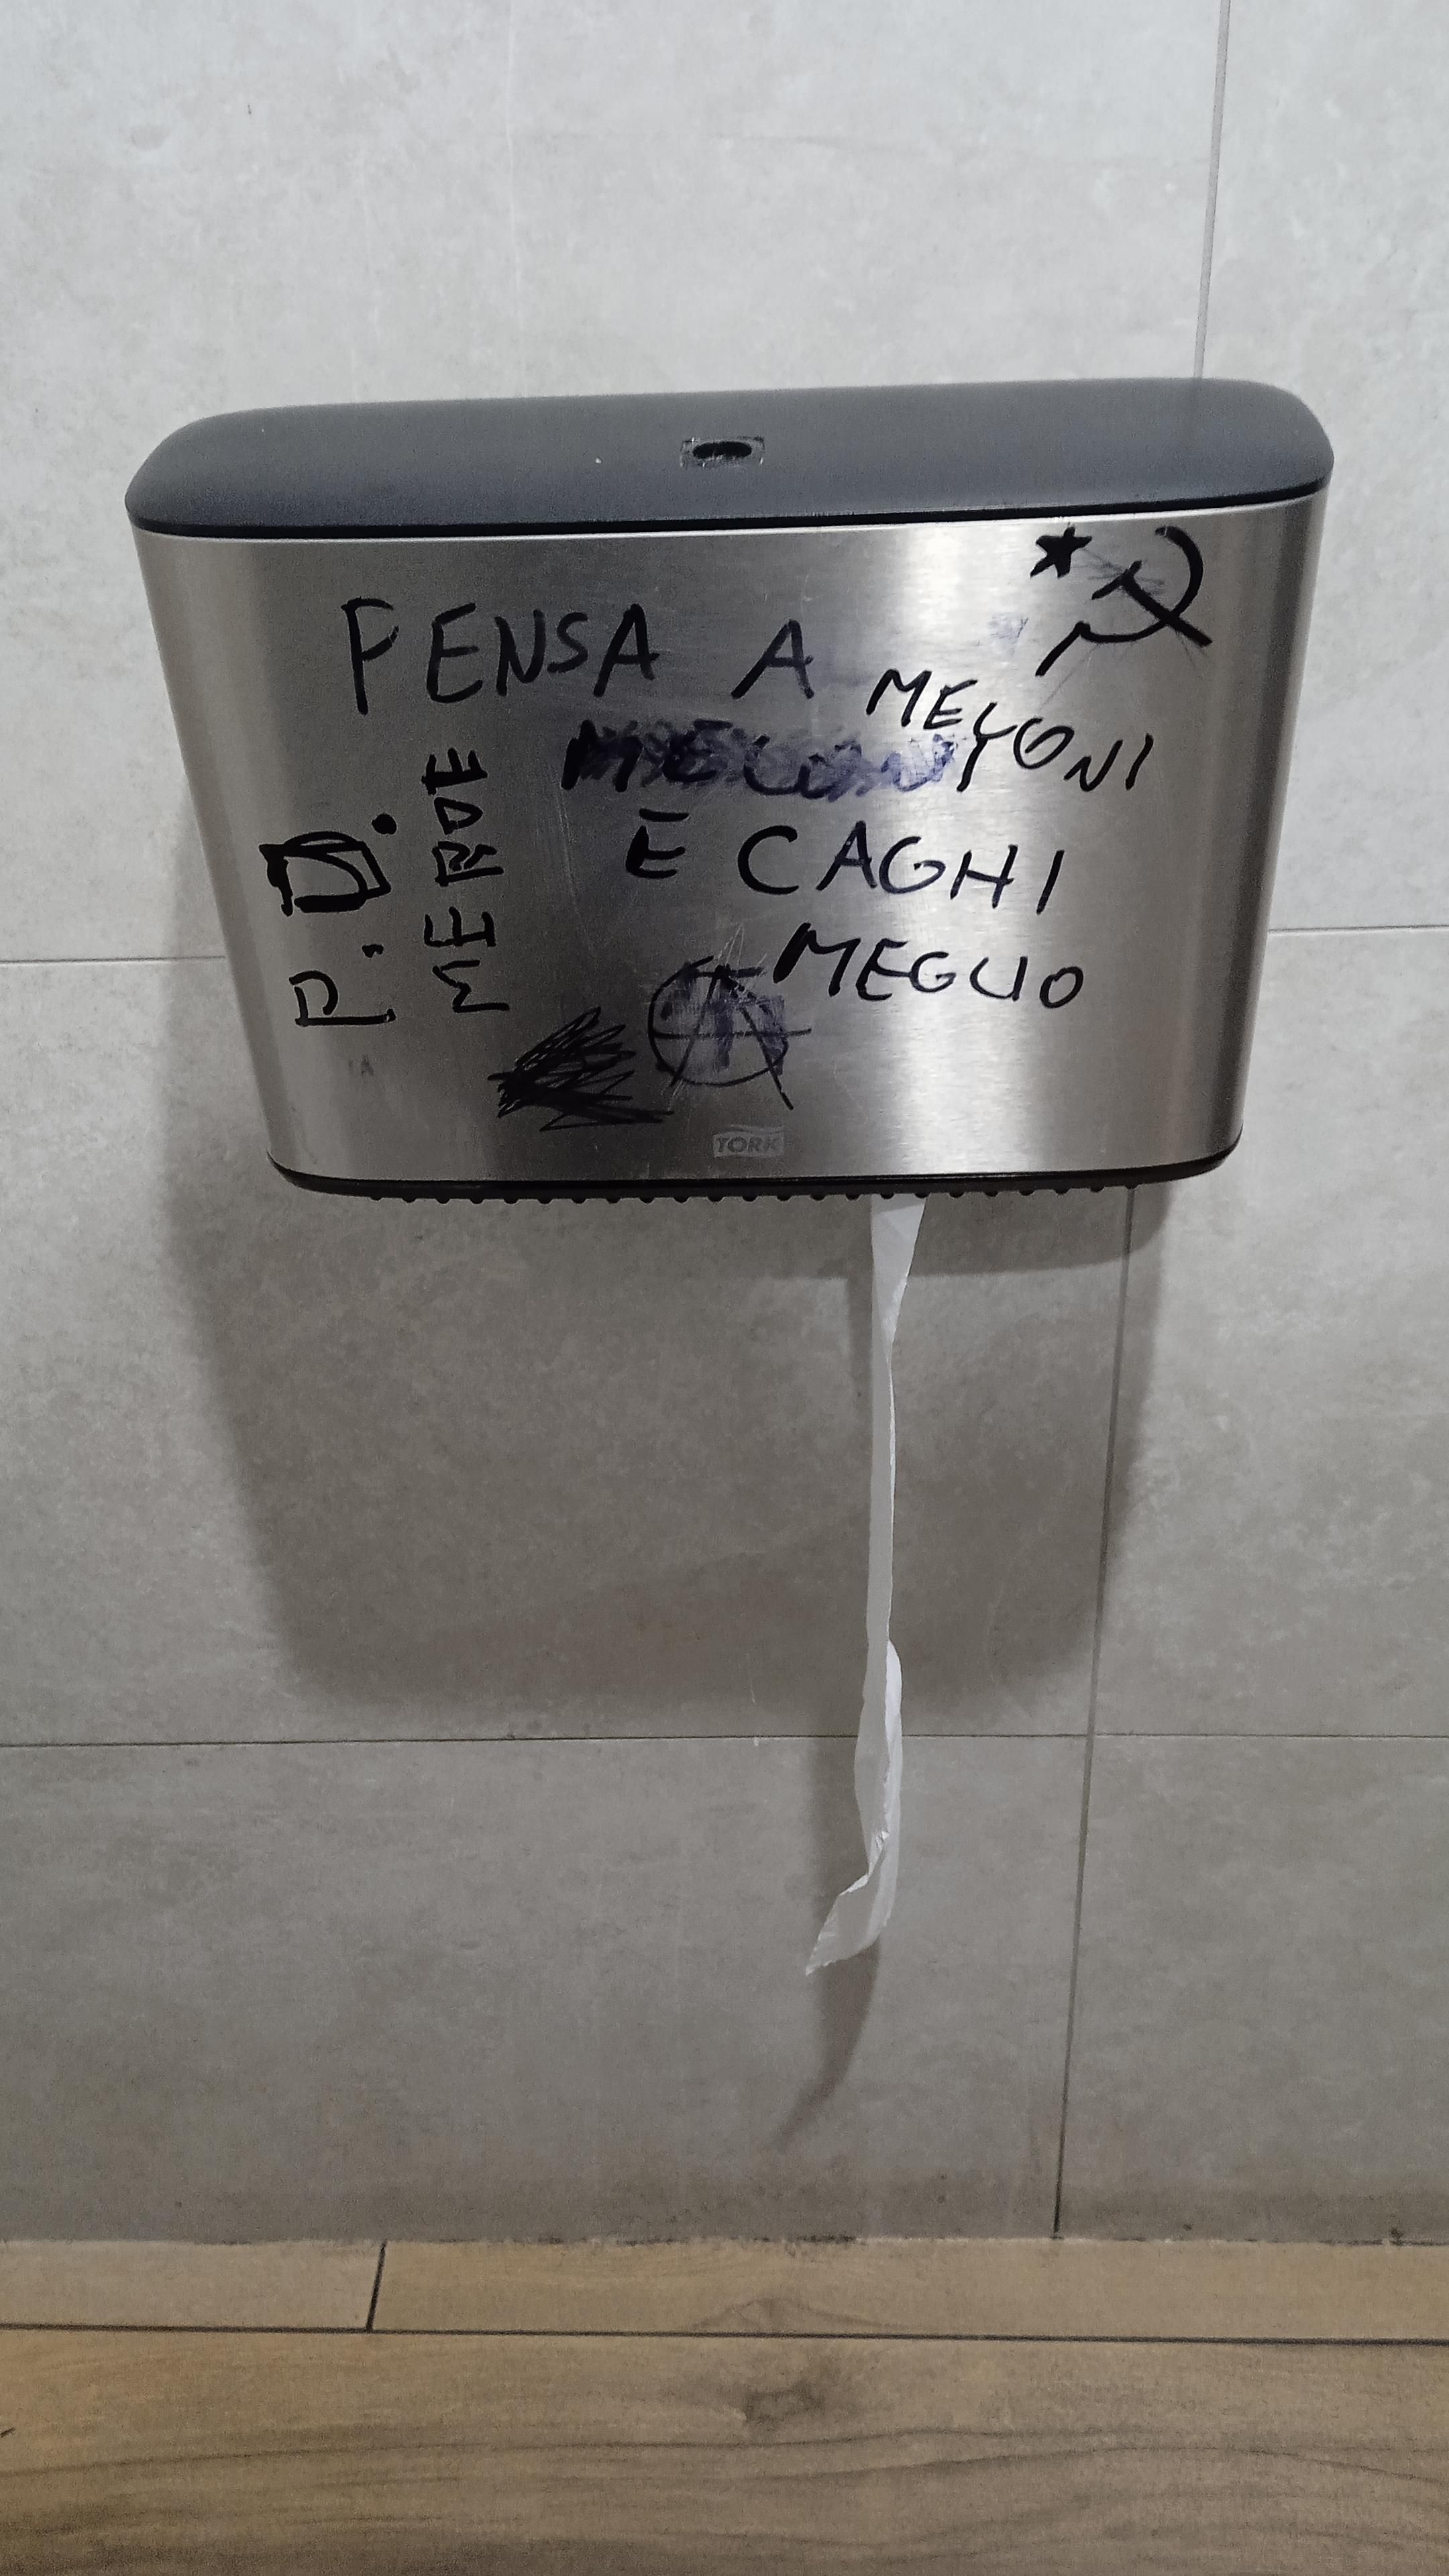 PENSA A
MELONI
MELONI
E CAGHI
MEGLIO
P.D.
MERDE
A
TORK